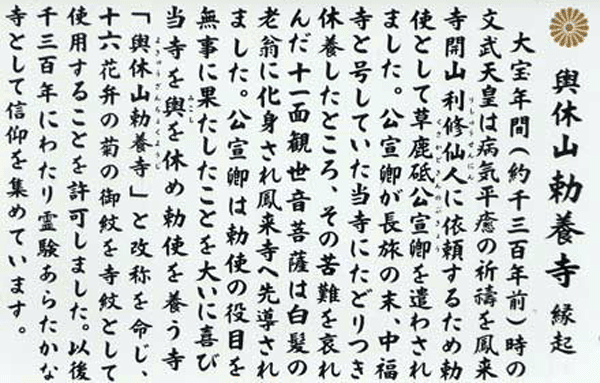 輿休山勅養寺 縁起
大宝年間(約千三百年前)時の
文武天皇は病気平癒の祈禱を鳳来
りしゅうせんにん
寺開山利修仙人に依頼するため勅
使として草鹿砥公宣卿を遣わされ
ました。公宣卿が長旅の末、中福
寺と号していた当寺にたどりつき
休養したところ、その苦難を哀れ
んだ十一面観世音菩薩は白髪の
老翁に化身され鳳来寺へ先導され
ました。公宣卿は勅使の役目を
無事に果たしたことを大いに喜び
みこし
当寺を輿を休め勅使を養う寺
よきゅうざんちょくようじ
「輿休山勅養寺」と改称を命じ、
十六花弁の菊の御紋を寺紋として
使用することを許可しました。以後
千三百年にわたり霊験あらたかな
寺として信仰を集めています。